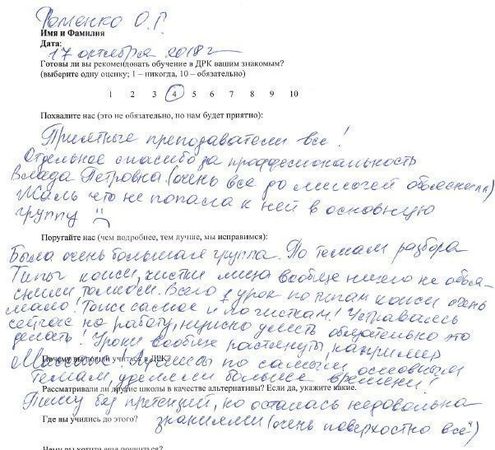 Фоменко О.Г.
Имя и Фамилия
Дата:
17 октября 2018 г
Готовы ли вы рекомендовать обучение в ДРК вашим знакомым?
(выберите одну оценку; 1 – никогда, 10 – обязательно)
1 2 3 4 5 6 7 8 9 10
Похвалите нас (это не обязательно, но нам будет приятно):
Приятные преподаватели все!
Отдельное спасибо за профессиональность
Влада Петровна (очень все до мелочей объяснили)
Жаль что не попала к ней в основную
группу
Поругайте нас (чем подробнее, тем лучше, мы исправимся):
Была очень большая группа. По темам разбора
Типы кожи, чистки лица вообще ничего не объя-
снили толком. Всего 1 урок по типам кожи очень
мало! Тоже самое и по чисткам! Устраиваясь
сейчас на работу, нужно уметь обязательно это
делать! Уроки вообще растянуты, например
Массаж, по самым основным
Почему вы пошли учиться в ДРК?
темам, уделили больше времени!
Рассматривали ли другие школы в качестве альтернативы? Если да, укажите какие.
Пишу без претензий, но осталась недовольна
Где вы учились до этого?
знаниями (очень поверхностно всё)